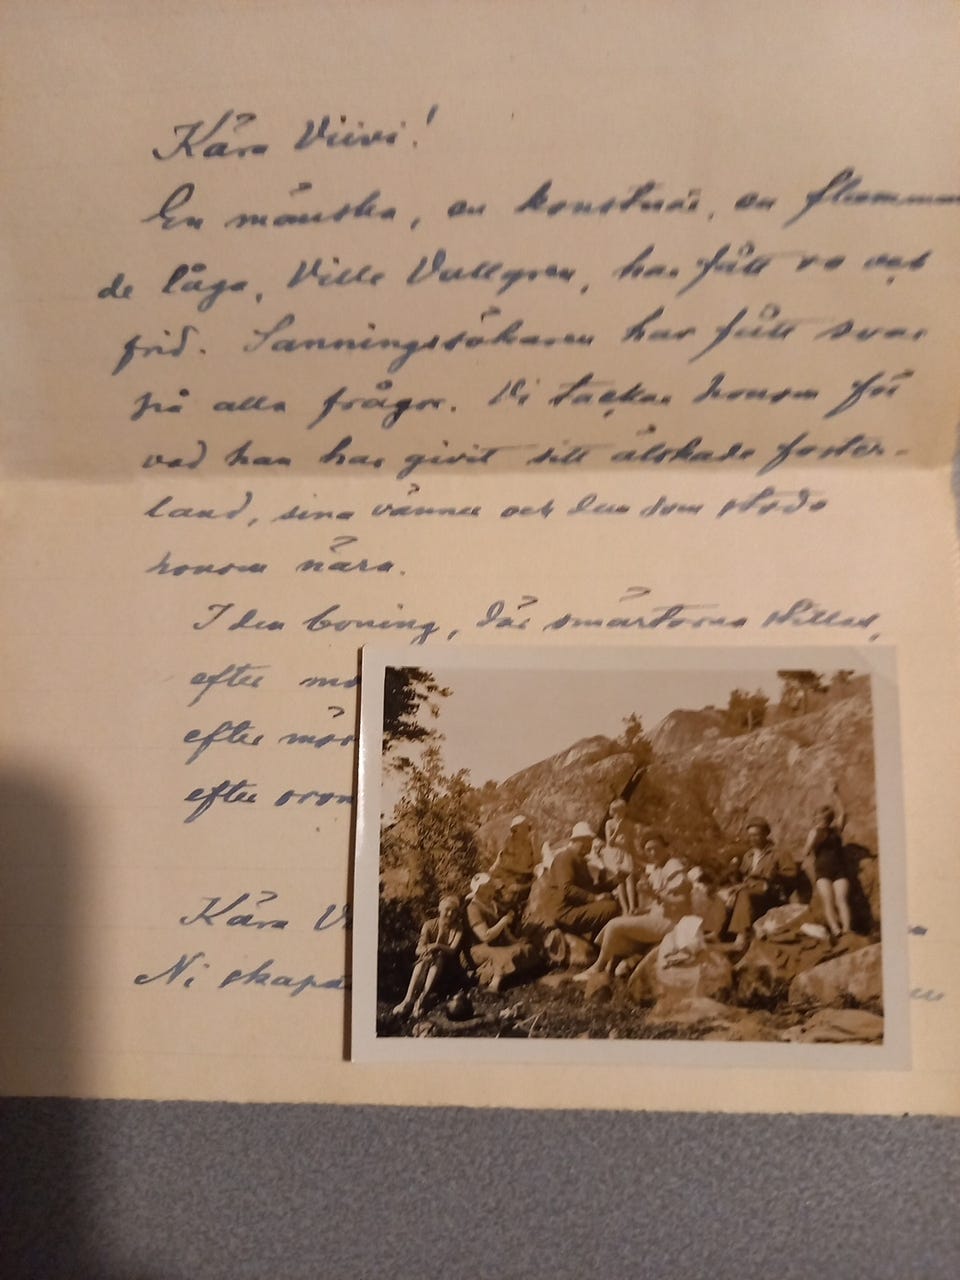 Kära Viivi!
En mänska, en konstnär, en flamman
de låga, Ville Vallgren, har fått ro och
frid. Sanningssökaren har fått svar
på alla frågor. Vi tackar honom för
vad han har givit sitt älskade foster-
land, sina vänner och dem som stodo
honom nära.
I den boning, där smärtorna stillas,
efter
efter
efter
Kära V
Ni skapa